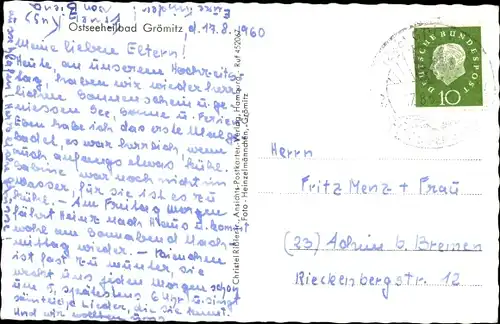 Ostseeheilbad Grömitz d. 17.8.1960
Meine lieben Eltern!
Heute, an unserem Hochzeits-
tag, haben wir wieder herr-
lichen Sonnenschein u. ge-
niessen See, Sonne u. Ferien.
Eben habe ich das erste Mal ge-
badet, es war herrlich, wenn
auch anfangs etwas kühl.
Sabine war noch nicht im
Wasser, für sie ist es zu
kühl. - Am Freitag morgen
fährt Heinz nach Haus u. kom
wohl am Sonnabend Nach-
mittag wieder. -
ist fast zu munter, sie
weckt uns jeden Morgen schon
um 5, spätestens 6 Uhr u. singt
sämtliche Lieder, die sie
Und wir wollten
Christel Riddeck, Ansichts-Postkarten-Verlag, Hamburg, Ruf 452067
Foto - Heinzelmännchen, Grömitz
DEUTSCHE BUNDESPOST
10
Herrn
Fritz Menz + Frau
(23) Achim b. Bremen
Rieckenbergstr. 12